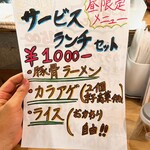 昼限定
メニュー
サービス
ランチセット
¥1000-
・豚骨ラーメン
・カラアゲ(2個
・ライス(おかわり
自由!!)